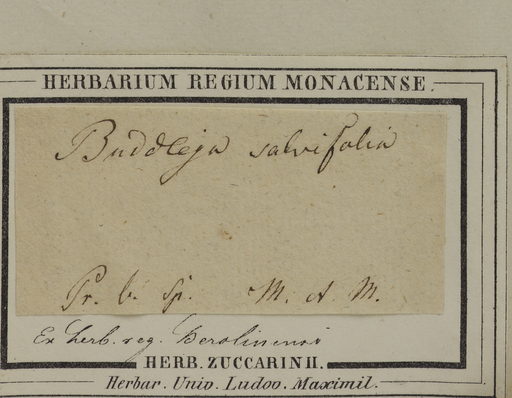 HERBARIUM REGIUM MONACENSE.
Buddleja salvifolia
Pr. b. Sp. M. A. M.
Ex herb. reg. Berolinensi
HERB. ZUCCARINII.
Herbar. Univ. Ludov. Maximil.